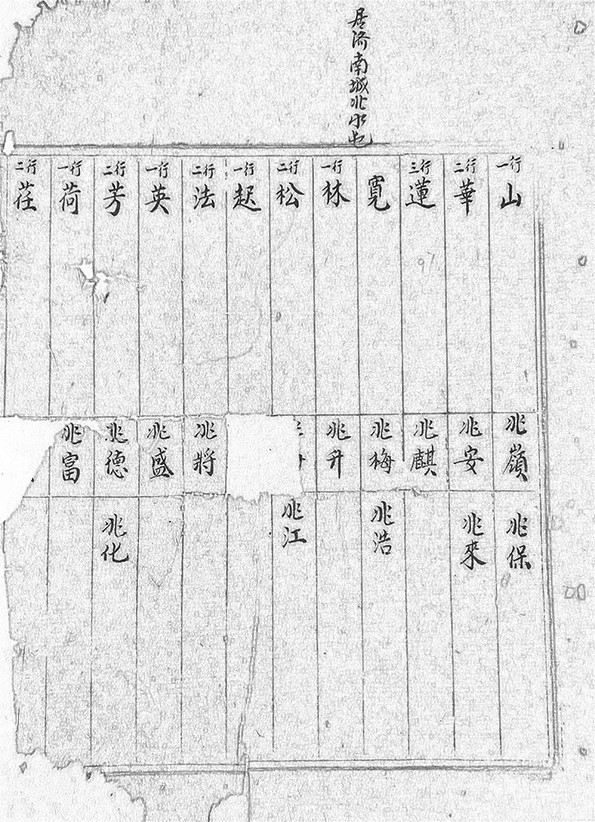 居济南城北水屯
一行 山 兆嶺 兆保
二行 華 兆安 兆來
三行 蓮 兆麒
寛 兆梅 兆浩
一行 林 兆升
二行 松 兆江
一行 起
二行 法 兆将
一行 英 兆盛
二行 芳 兆德 兆化
一行 荷 兆富
二行 荏